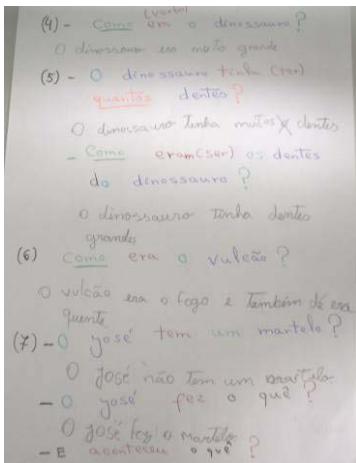 (verbo)
(4) - Como era o dinossauro?
O dinossauro era muto grande
(5) - O dinossauro tinha (ter)
quantos dentes?
O dinossauro tinha mutos dentes
- Como eram (ser) os dentes
do dinossauro?
O dinossauro tinha dentes
grandes
(6) Como era o vulcão?
O vulcão era o fogo e também dé era
quente
(7) - O yosé tem um martelo?
O José não tem um martelo
- O yosé fez o quê?
O José fez o martelo
- E aconteceu o quê?